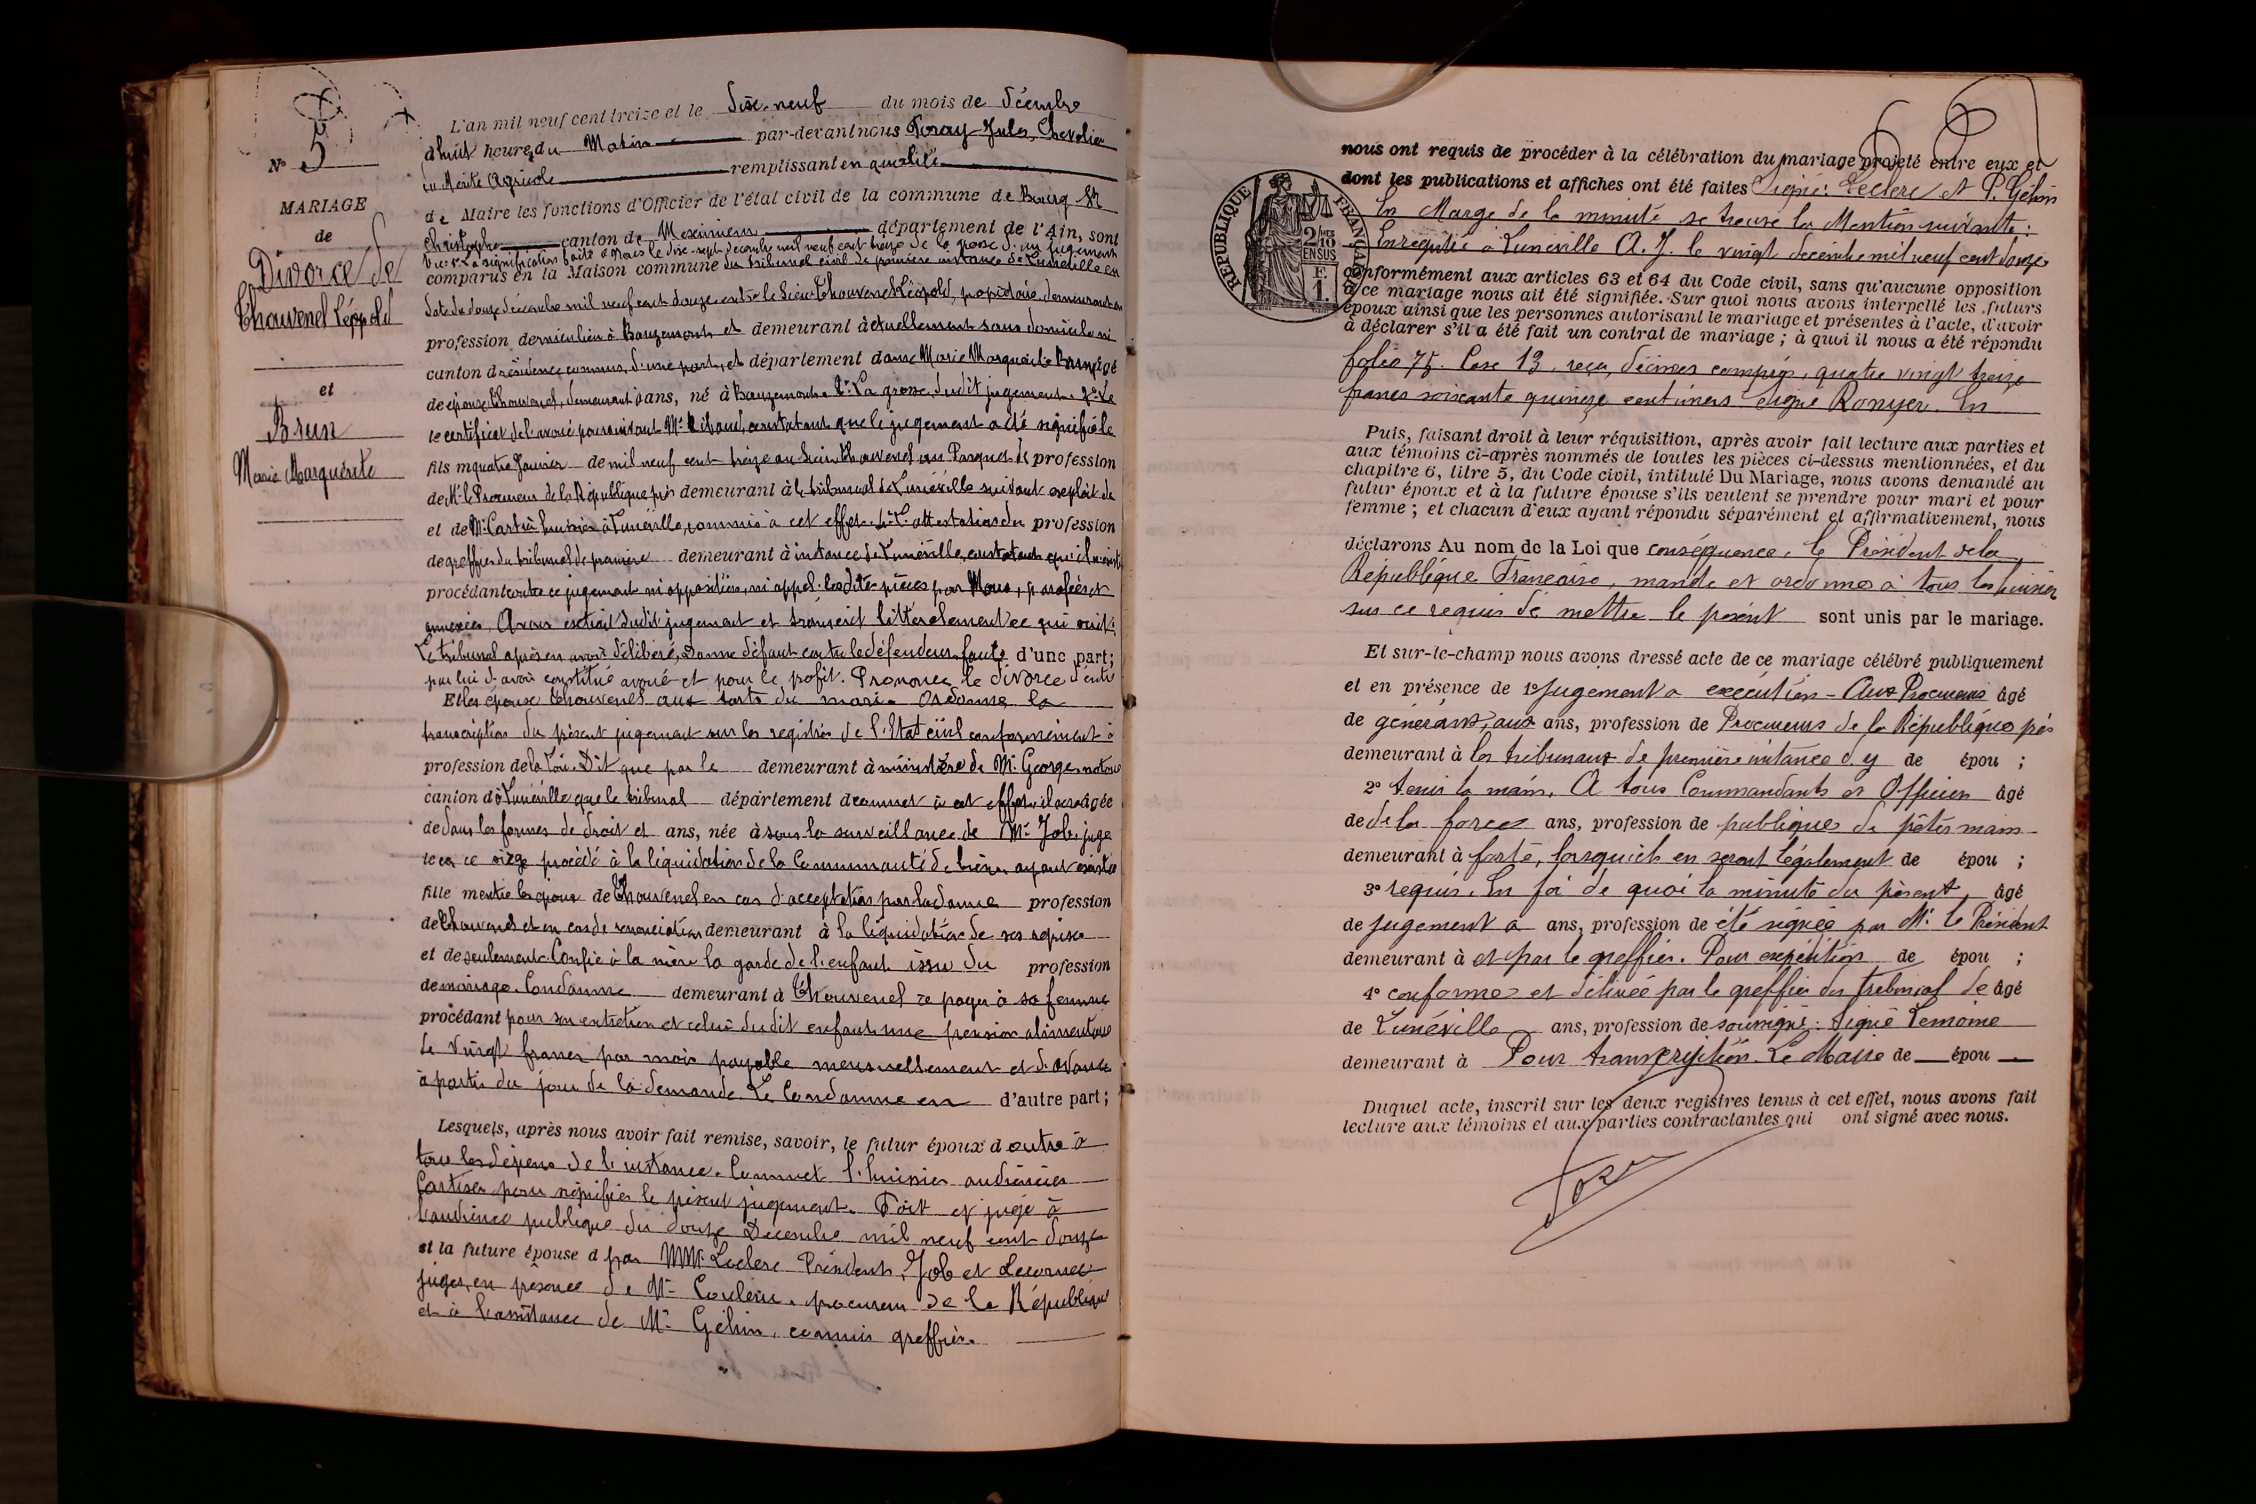 N° 5
MARIAGE
de
Divorce de
Thouvenel Léopold
et
Brun
Marie Marguerite
L'an mil neuf cent treize et le dix-neuf du mois de décembre
à huit heures du Matin par-devant nous Foray Jules, Chevalier
du Mérite Agricole remplissant en qualité
de Maire les fonctions d'Officier de l'état civil de la commune de Bourg St
Christophe canton de Meximieux département de l'Ain, sont
Vu: 1° La signification faite à Nous le dix-sept décembre mil neuf cent treize de la grosse d'un jugement
comparus en la Maison commune du tribunal civil de première instance de Lunéville en
date du douze décembre mil neuf cent douze entre le Sieur Thouvenel Léopold, propriétaire, demeurant en
profession dernier lieu à Bauzemont et demeurant à actuellement sans domicile ni
canton d résidence connus, d'une part, et département dame Marie Marguerite Brun, âgé
de épouse Thouvenel, demeurant à ans, né à Bauzemont. 2° La grosse dudit jugement. 3° Le
le certificat de l'avoué poursuivant Mr Ribaud, constatant que le jugement a été signifié le
fils m quatre Janvier de mil neuf cent treize au Sieur Thouvenel au Parquet de profession
de Mr le Procureur de la République près demeurant à le tribunal de Lunéville suivant exploit de
et de Mr Cartier huissier à Lunéville, commis à cet effet. 4° L'attestation du profession
de greffier du tribunal de première demeurant à instance de Lunéville, constatant qu'il n'existe
procédant contre ce jugement ni opposition, ni appel. Lesdites pièces par Nous, paraphées et
annexées, Avons extrait dudit jugement et transcrit littéralement ce qui suit:
Le tribunal après en avoir délibéré, Donne défaut contre le défendeur faute d'une part;
par lui d'avoir constitué avoué et pour le profit. Prononce le divorce d'entre
Et les époux Thouvenel aux torts du mari. Ordonne la
transcription du présent jugement sur les registres de l'Etat civil conformément à
profession de la loi. Dit que par le demeurant à ministère de Mr George notaire
canton d à Lunéville que le tribunal département d commet à cet effet, il sera âgée
de dans les formes de droit et ans, née à sous la surveillance de Mr Job, juge
le en ce siège procédé à la liquidation de la Communauté de biens ayant existé
fille m entre les époux de Thouvenel en cas d'acceptation par la dame profession
de Thouvenel et en cas de renonciation demeurant à la liquidation de ses reprises
et de seulement. Confie à la mère la garde de l'enfant issu du profession
de mariage. Condamne demeurant à Thouvenel à payer à sa femme
procédant pour son entretien et celui dudit enfant une pension alimentaire
de vingt francs par mois payable mensuellement et d'avance
à partir du jour de la demande. Le Condamne en d'autre part;
Lesquels, après nous avoir fait remise, savoir, le futur époux d outre à
tous les dépens de l'instance. Commet l'huissier audiencier
Cartier pour signifier le présent jugement. Fait et jugé à
l'audience publique du douze Décembre mil neuf cent douze
et la future épouse d par MMrs Leclerc Président, Job et Lecornet
juges, en présence de Mr Couleru, procureur de la République
et à l'assistance de Mr Gélin, commis greffier.
RÉPUBLIQUE FRANÇAISE
2/10 EN SUS
F. 1.
nous ont requis de procéder à la célébration du mariage projeté entre eux et
dont les publications et affiches ont été faites Signé: Leclerc et P. Gélin
En Marge de la minute se trouve la Mention suivante:
Enregistré à Lunéville A. J. le vingt décembre mil neuf cent douze
conformément aux articles 63 et 64 du Code civil, sans qu'aucune opposition
à ce mariage nous ait été signifiée. Sur quoi nous avons interpellé les futurs
époux ainsi que les personnes autorisant le mariage et présentes à l'acte, d'avoir
à déclarer s'il a été fait un contrat de mariage; à quoi il nous a été répondu
folio 75. Case 13, reçu, décimes compris, quatre vingt treize
francs soixante quinze centimes signé Ronyer. En
Puis, faisant droit à leur réquisition, après avoir fait lecture aux parties et
aux témoins ci-après nommés de toutes les pièces ci-dessus mentionnées, et du
chapitre 6, titre 5, du Code civil, intitulé Du Mariage, nous avons demandé au
futur époux et à la future épouse s'ils veulent se prendre pour mari et pour
femme; et chacun d'eux ayant répondu séparément et affirmativement, nous
déclarons Au nom de la Loi que conséquence, le Président de la
République Française, mande et ordonne à tous les huissiers
sur ce requis de mettre le présent sont unis par le mariage.
Et sur-le-champ nous avons dressé acte de ce mariage célébré publiquement
et en présence de 1° jugement à exécution - Aux Procureurs âgé
de généraux, aux ans, profession de Procureurs de la République près
demeurant à les tribunaux de première instance d'y de épou ;
2° tenir la main. A tous Commandants et Officiers âgé
de de la force ans, profession de publique de prêter main
demeurant à forte, lorsqu'ils en seront légalement de épou ;
3° requis. En foi de quoi la minute du présent âgé
de jugement a ans, profession de été signée par Mr le Président
demeurant à et par le greffier. Pour expédition de épou ;
4° conforme et délivrée par le greffier du tribunal de âgé
de Lunéville ans, profession de soussigné: Signé Lemoine
demeurant à Pour transcription. Le Maire de épou
Duquel acte, inscrit sur les deux registres tenus à cet effet, nous avons fait
lecture aux témoins et aux parties contractantes qui ont signé avec nous.
Foray